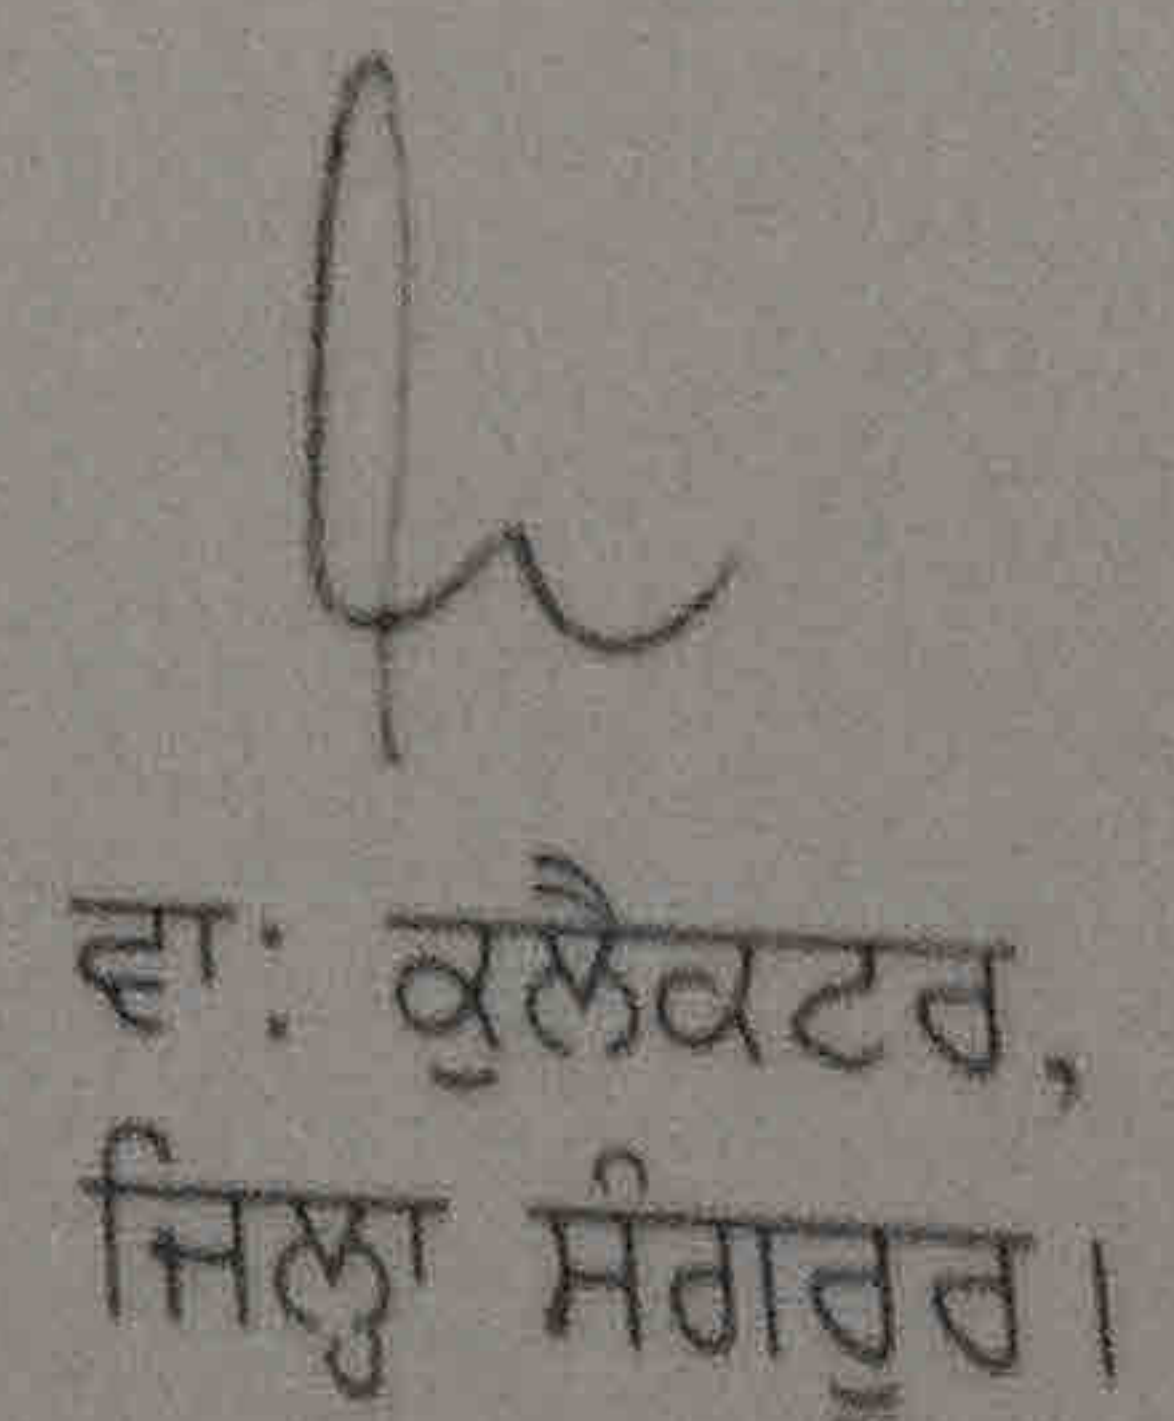 ਵਾ: ਕੁਲੈਕਟਰ,
ਜਿਲ੍ਹਾ ਸੰਗਰੂਰ।